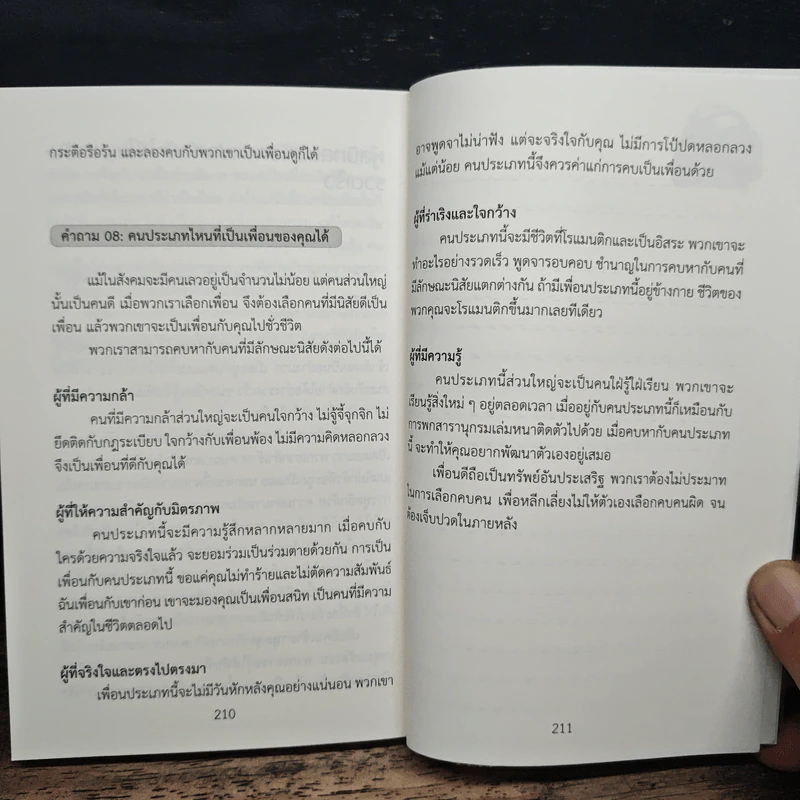 กระตือรือร้น และลองคบกับพวกเขาเป็นเพื่อนดูก็ได้
คำถาม 08: คนประเภทไหนที่เป็นเพื่อนของคุณได้
แม้ในสังคมจะมีคนเลวอยู่เป็นจำนวนไม่น้อย แต่คนส่วนใหญ่
นั้นเป็นคนดี เมื่อพวกเราเลือกเพื่อน จึงต้องเลือกคนที่มีนิสัยดีเป็น
เพื่อน แล้วพวกเขาจะเป็นเพื่อนกับคุณไปชั่วชีวิต
พวกเราสามารถคบหากับคนที่มีลักษณะนิสัยดังต่อไปนี้ได้
ผู้ที่มีความกล้า
คนที่มีความกล้าส่วนใหญ่จะเป็นคนใจกว้าง ไม่จู้จี้จุกจิก ไม่
ยึดติดกับกฎระเบียบ ใจกว้างกับเพื่อนพ้อง ไม่มีความคิดหลอกลวง
จึงเป็นเพื่อนที่ดีกับคุณได้
ผู้ที่ให้ความสำคัญกับมิตรภาพ
คนประเภทนี้จะมีความรู้สึกหลากหลายมาก เมื่อคบกับ
ใครด้วยความจริงใจแล้ว จะยอมร่วมเป็นร่วมตายด้วยกัน การเป็น
เพื่อนกับคนประเภทนี้ ขอแค่คุณไม่ทำร้ายและไม่ตัดความสัมพันธ์
ฉันเพื่อนกับเขาก่อน เขาจะมองคุณเป็นเพื่อนสนิท เป็นคนที่มีความ
สำคัญในชีวิตตลอดไป
ผู้ที่จริงใจและตรงไปตรงมา
เพื่อนประเภทนี้จะไม่มีวันหักหลังคุณอย่างแน่นอน พวกเขา
210
อาจพูดจาไม่น่าฟัง แต่จะจริงใจกับคุณ ไม่มีการโป้ปดหลอกลวง
แม้แต่น้อย คนประเภทนี้จึงควรค่าแก่การคบเป็นเพื่อนด้วย
ผู้ที่ร่าเริงและใจกว้าง
คนประเภทนี้จะมีชีวิตที่โรแมนติกและเป็นอิสระ พวกเขาจะ
ทำอะไรอย่างรวดเร็ว พูดจารอบคอบ ชำนาญในการคบหากับคนที่
มีลักษณะนิสัยแตกต่างกัน ถ้ามีเพื่อนประเภทนี้อยู่ข้างกาย ชีวิตของ
พวกคุณจะโรแมนติกขึ้นมากเลยทีเดียว
ผู้ที่มีความรู้
คนประเภทนี้ส่วนใหญ่จะเป็นคนใฝ่รู้ใฝ่เรียน พวกเขาจะ
เรียนรู้สิ่งใหม่ ๆ อยู่ตลอดเวลา เมื่ออยู่กับคนประเภทนี้ก็เหมือนกับ
การพกสารานุกรมเล่มหนาติดตัวไปด้วย เมื่อคบหากับคนประเภท
นี้ จะทำให้คุณอยากพัฒนาตัวเองอยู่เสมอ
เพื่อนดีถือเป็นทรัพย์อันประเสริฐ พวกเราต้องไม่ประมาท
ในการเลือกคบคน เพื่อหลีกเลี่ยงไม่ให้ตัวเองเลือกคบคนผิด จน
ต้องเจ็บปวดในภายหลัง
211